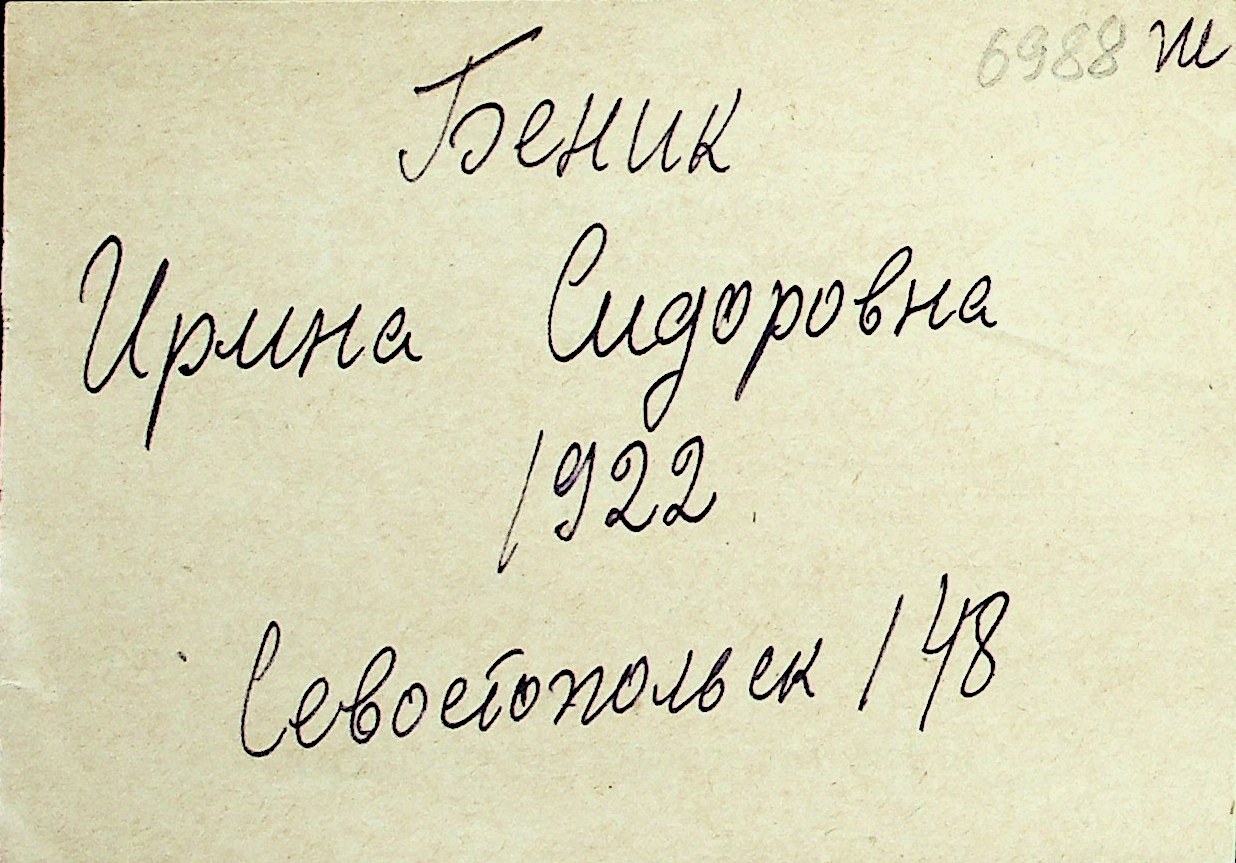 6988 ж
Беник
Ирина Сидоровна
1922
Севостопольск 148